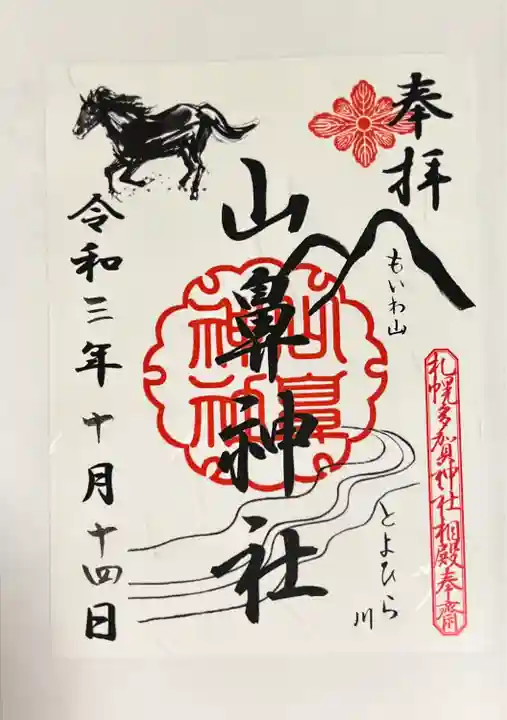 奉拝
もいわ山
札幌多賀神社相殿奉齋
とよひら川
山鼻神社
山鼻神社
令和三年十月十四日